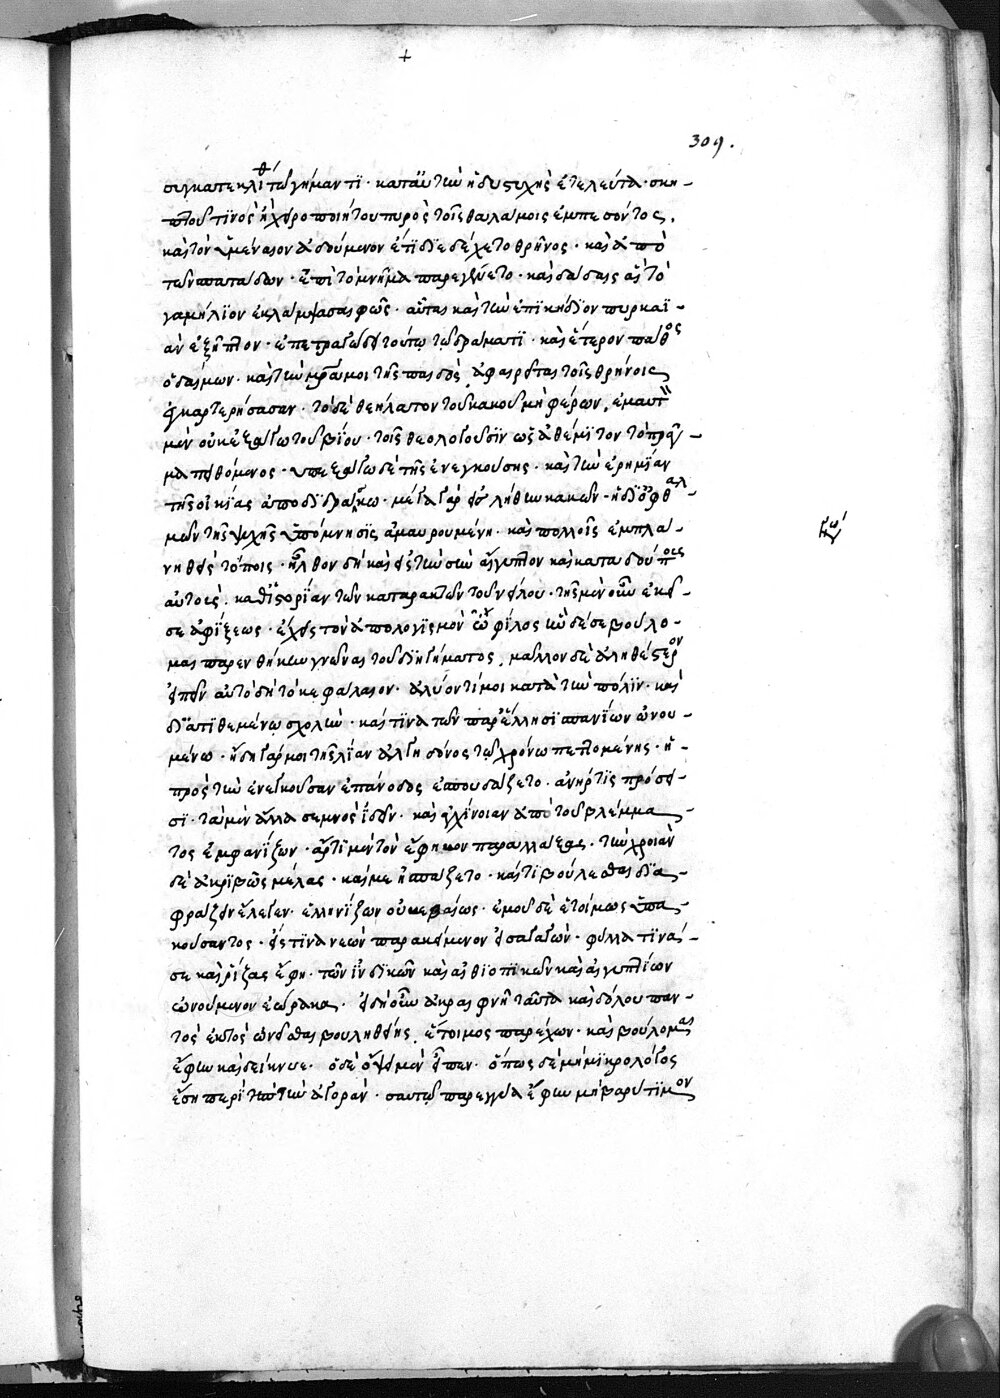 +
309.
συγκατεκλίθη τῷ γήμαντι· κατ' αὐτὴν ἡ δυστυχὴς ἐτελεύτα· σκη-
πτοῦ τινὸς ἢ χειροποιήτου πυρὸς τοῖς θαλάμοις ἐμπεσόντος.
καὶ τὸν ὑμέναιον ἀδόμενον ἔτι διεδέχετο θρῆνος· καὶ ἀπὸ
τῶν παστάδων· ἐπὶ τὸ μνῆμα παρεπέμπετο· καὶ δᾷδες αἱ τὸ
γαμήλιον ἐκλάμψασαι φῶς· αὗται καὶ τὴν ἐπικήδιον πυρκαϊ-
ὰν ἐξῆπτον· ἐπετραγῴδει τούτῳ τῷ δράματι· καὶ ἕτερον πάθος
ὁ δαίμων· καὶ τὴν μητέρα μοι τῆς παιδὸς ἀφαιρεῖται τοῖς θρήνοις
ἐγκαρτερήσασαν· τὸ δὲ θεήλατον τοῦ κακοῦ μὴ φέρων, ἐμαυτὸν
μὲν οὐκ ἐξάγω τοῦ βίου· τοῖς θεολογοῦσιν ὡς ἀθέμιτον τὸ πρᾶγ-
μα πειθόμενος· ὑπεξάγω δὲ τῆς ἐνεγκούσης· καὶ τὴν ἐρημίαν
τῆς οἰκίας ἀποδιδράσκω· μέγα γὰρ εἰς λήθην κακῶν· ἡ δι' ὀφθαλ-
μῶν τῆς ψυχῆς ὑπόμνησις ἀμαυρουμένη· καὶ πολλοῖς ἐμπλα-
νηθεὶς τόποις· ἦλθον δὴ καὶ εἰς τὴν σὴν αἴγυπτον καὶ καταδούπους
αὐτούς· καθ' ἱστορίαν τῶν καταρακτῶν τοῦ νείλου· τῆς μὲν οὖν ἐκεῖ-
σε ἀφίξεως· ἔχεις τὸν ἀπολογισμὸν ὦ φίλος ἣν δέ σε βούλο-
μαι παρενθήκην γνῶναι τοῦ διηγήματος, μᾶλλον δὲ ἀληθέστερον
εἰπεῖν αὐτὸ δὴ τὸ κεφάλαιον· ἀλύοντί μοι κατὰ τὴν πόλιν· καὶ
διατιθεμένῳ σχολὴν· καί τινα τῶν παρ' ἕλλησι σπανίων ὠνου-
μένῳ· ἤδη γάρ μοι τῆς λίαν ἀλγηδόνος τῷ χρόνῳ πεττομένης· ἡ
πρὸς τὴν ἐνεγκοῦσαν ἐπάνοδος ἐσπουδάζετο· ἀνήρ τις πρόσει-
σι· τὰ μὲν ἄλλα σεμνὸς ἰδεῖν· καὶ ἀγχίνοιαν ἀπὸ τοῦ βλέμμα-
τος ἐμφανίζων· ἄρτι μὲν τὸν ἔφηβον παραλλάξας· τὴν χροιὰν
δὲ ἀκριβῶς μέλας· καί με ἠσπάζετο· καί τι βούλεσθαι δια-
φράζειν ἔλεγεν· ἑλληνίζων οὐ βεβαίως· ἐμοῦ δὲ ἑτοίμως ὑπα-
κούσαντος· εἴς τινα νεὼν παρακείμενον εἰσαγαγὼν· φύλλα τινά
σε καὶ ῥίζας ἔφη· τῶν ἰνδικῶν καὶ αἰθιοπικῶν καὶ αἰγυπτίων
ὠνούμενον ἑώρακα. εἰ δὴ οὖν ἀκραιφνῆ ταῦτα καὶ δόλου παν-
τὸς ἐκτὸς ὠνεῖσθαι βουληθείης, ἕτοιμος παρέχειν· καὶ βούλομαι
ἔφην καὶ δείκνυε· ὁ δὲ ὄψει μὲν εἶπεν· ὅπως δὲ μὴ μικρολόγος
ἔσῃ περὶ τὴν ἀγοράν· σαυτῷ παρεγγύα ἔφην μὴ βαρύτιμον